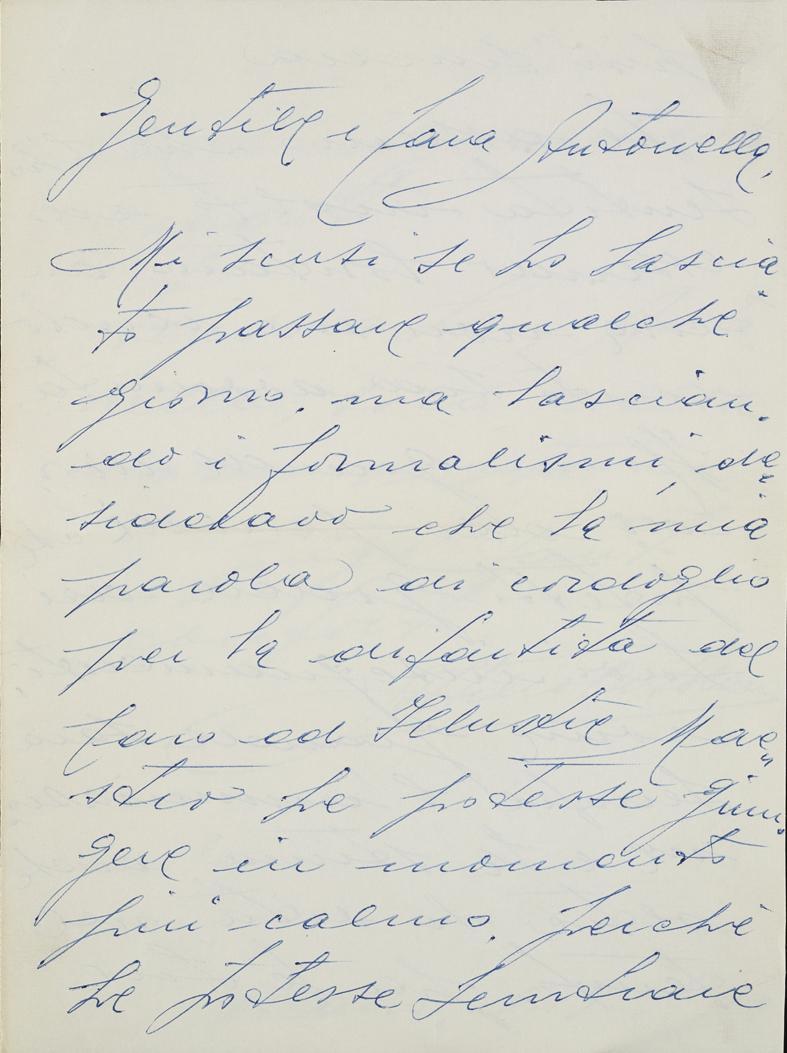 Gentile e Cara Antonella,
Mi scusi se ho lascia=
to passare qualche
giorno, ma lascian=
do i formalismi, de=
sideravo che la mia
parola di cordoglio
per la dipartita del
Caro ed Illustre Mae=
stro Le potesse giun=
gere in momento
più calmo, perchè
Le potesse sembrare